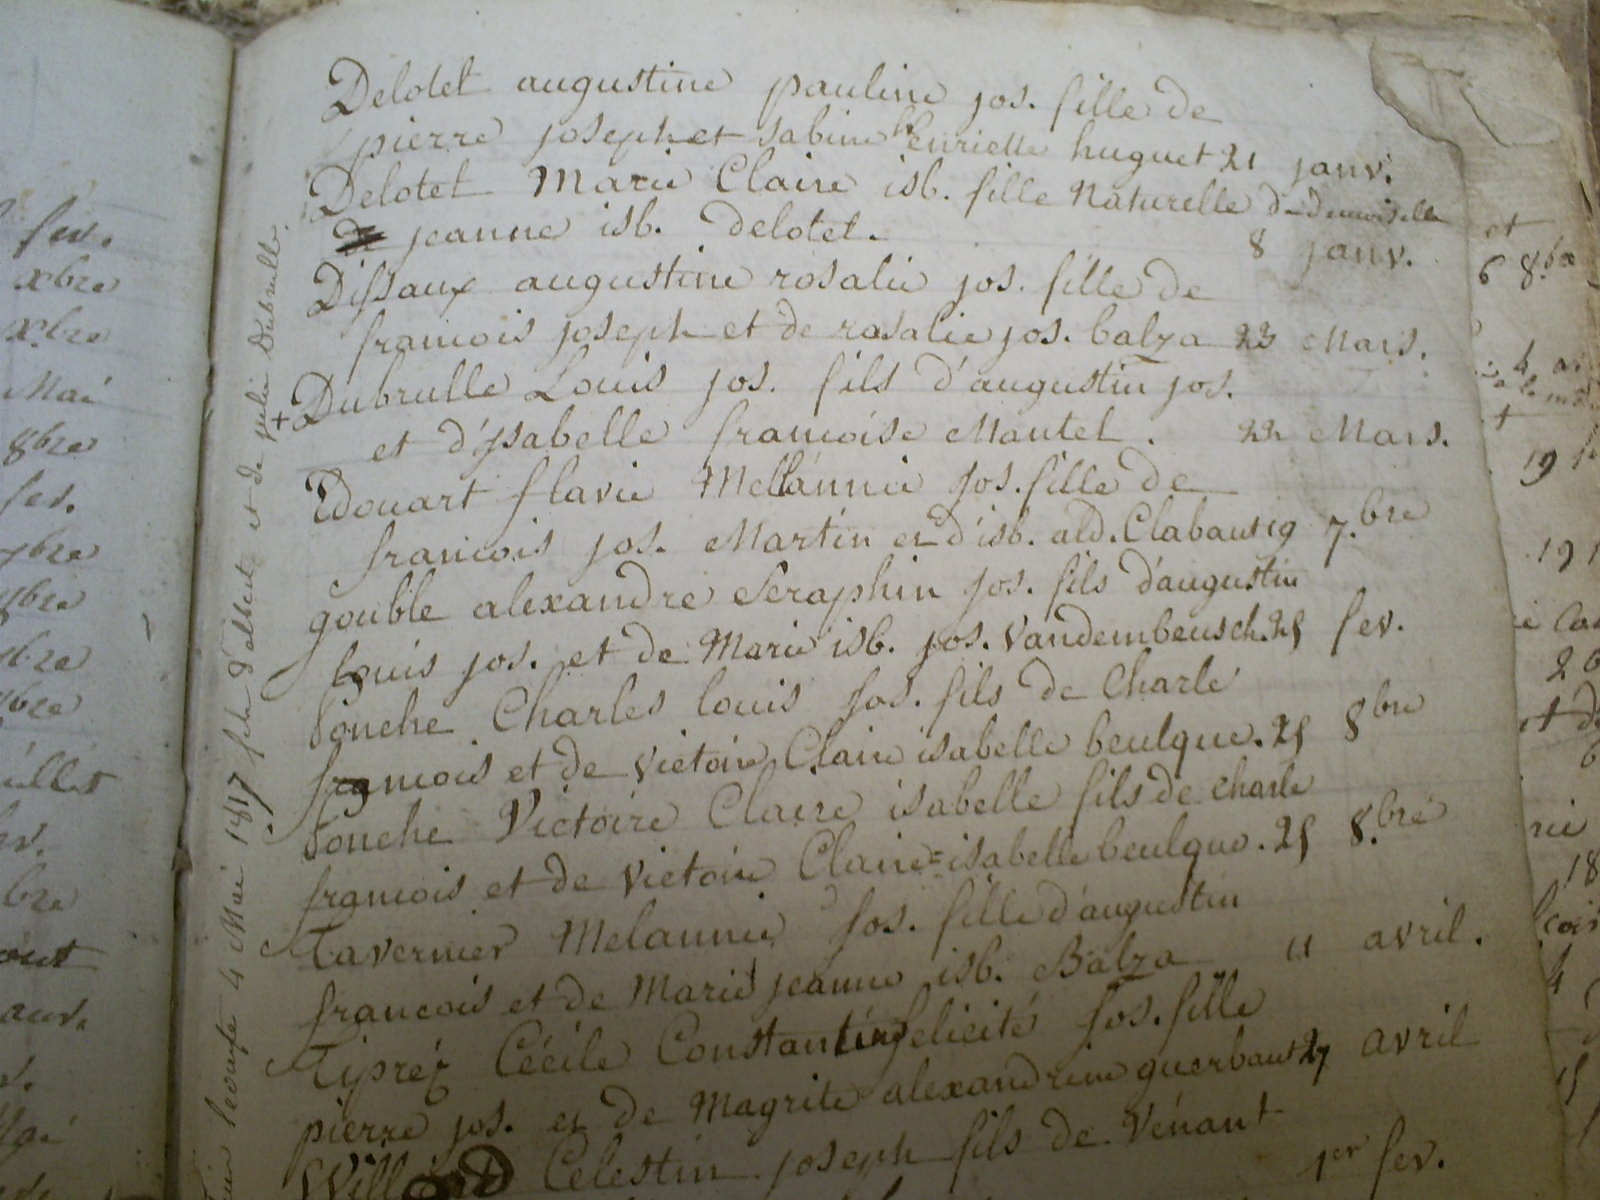 Delotel augustine pauline jos. fille de
pierre joseph et sabine henriette huguet 21 janv.
Delotel Marie Claire isb. fille Naturelle de demoiselle
jeanne isb. delotel. 8 janv.
Dissaux augustine rosalie jos. fille de
francois joseph et de rosalie jos. balza 23 Mars.
+ Dubrulle Louis jos. fils d'augustin jos.
et d'ysabelle francoise Mantel. 22 Mars.
Edouart flavie Mellannie jos. fille de
francois jos. Martin et d'isb. ald. Clabaut 19 7.bre
gouble alexandre Seraphin jos. fils d'augustin
louis jos. et de Marie isb. jos. Vandembeusch. 25 fev.
Souche Charles louis jos. fils de Charle
francois et de victoire Claire isabelle beulque. 25 8bre
Souche Victoire Claire isabelle fils de charle
francois et de victoire Claire=isabelle beulque. 25 8.bre
Tavernier Melannie jos. fille d'augustin
francois et de Marie jeanne isb. Balza 11 avril.
Tiprez Cécile Constantine felicité jos. fille
pierre jos. et de Magrite alexandrine guerbaut 27 avril
Celestin joseph fils de Vénant
1er fev.
4 Mai 1817 fils d'albert et de julie Dubrulle.
fev.
xbre
xbre
Mai
8bre
fev.
7bre